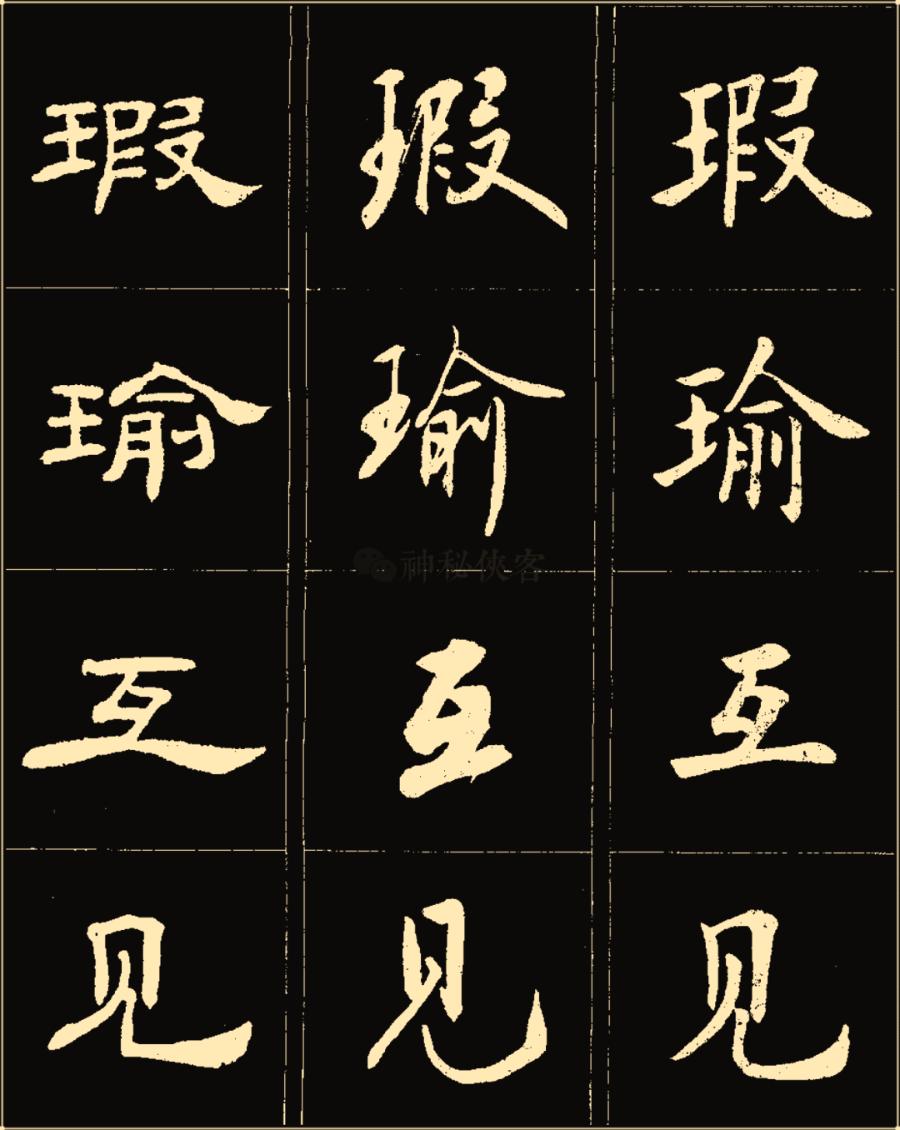 瑕 瑕 瑕
瑜 瑜 瑜
互 互 互
见 见 见
神秘侠客